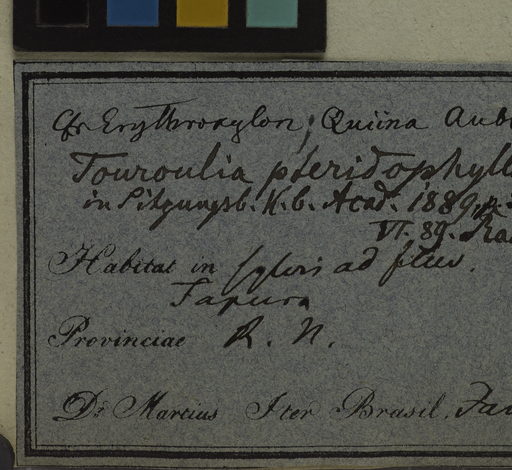 Cfr Erythroxylon; Quiina Aub
Touroulia pteridophyll
in Sitzungsb. K. b. Acad. 1889, p.
VI. 89. Ra
Habitat in sylvis ad fluv.
Japura
Provinciae R. N.
Dr. Martius Iter Brasil.